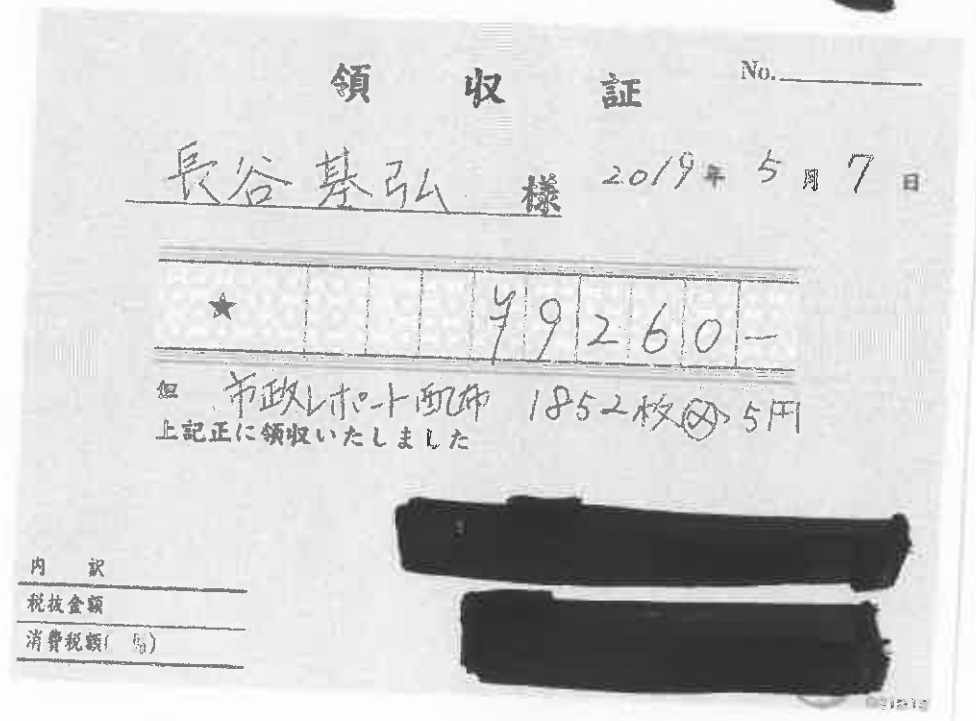 領収証 No.
長谷基弘 様 2019年5月7日
★ ¥9260-
但 市政レポート配布 1852枚 5円
上記正に領収いたしました
内訳
税抜金額
消費税額( %)